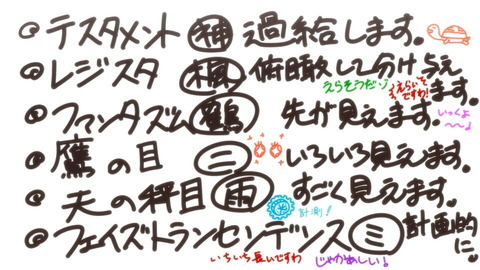 テスタメント 神 過給します。
レジスタ 楓 俯瞰して分け与えます。
えらそうだゾ
ですわ!
ファンタズム 鶴 先が見えます。
いっくよ〜〜♪
鷹の目 二 いろいろ見えます。
天の秤目 雨 すごく見えます。
計測!
フェイズトランセンデンス ミ 計画的に。
いちいち長いですわ
じゃかあしい!